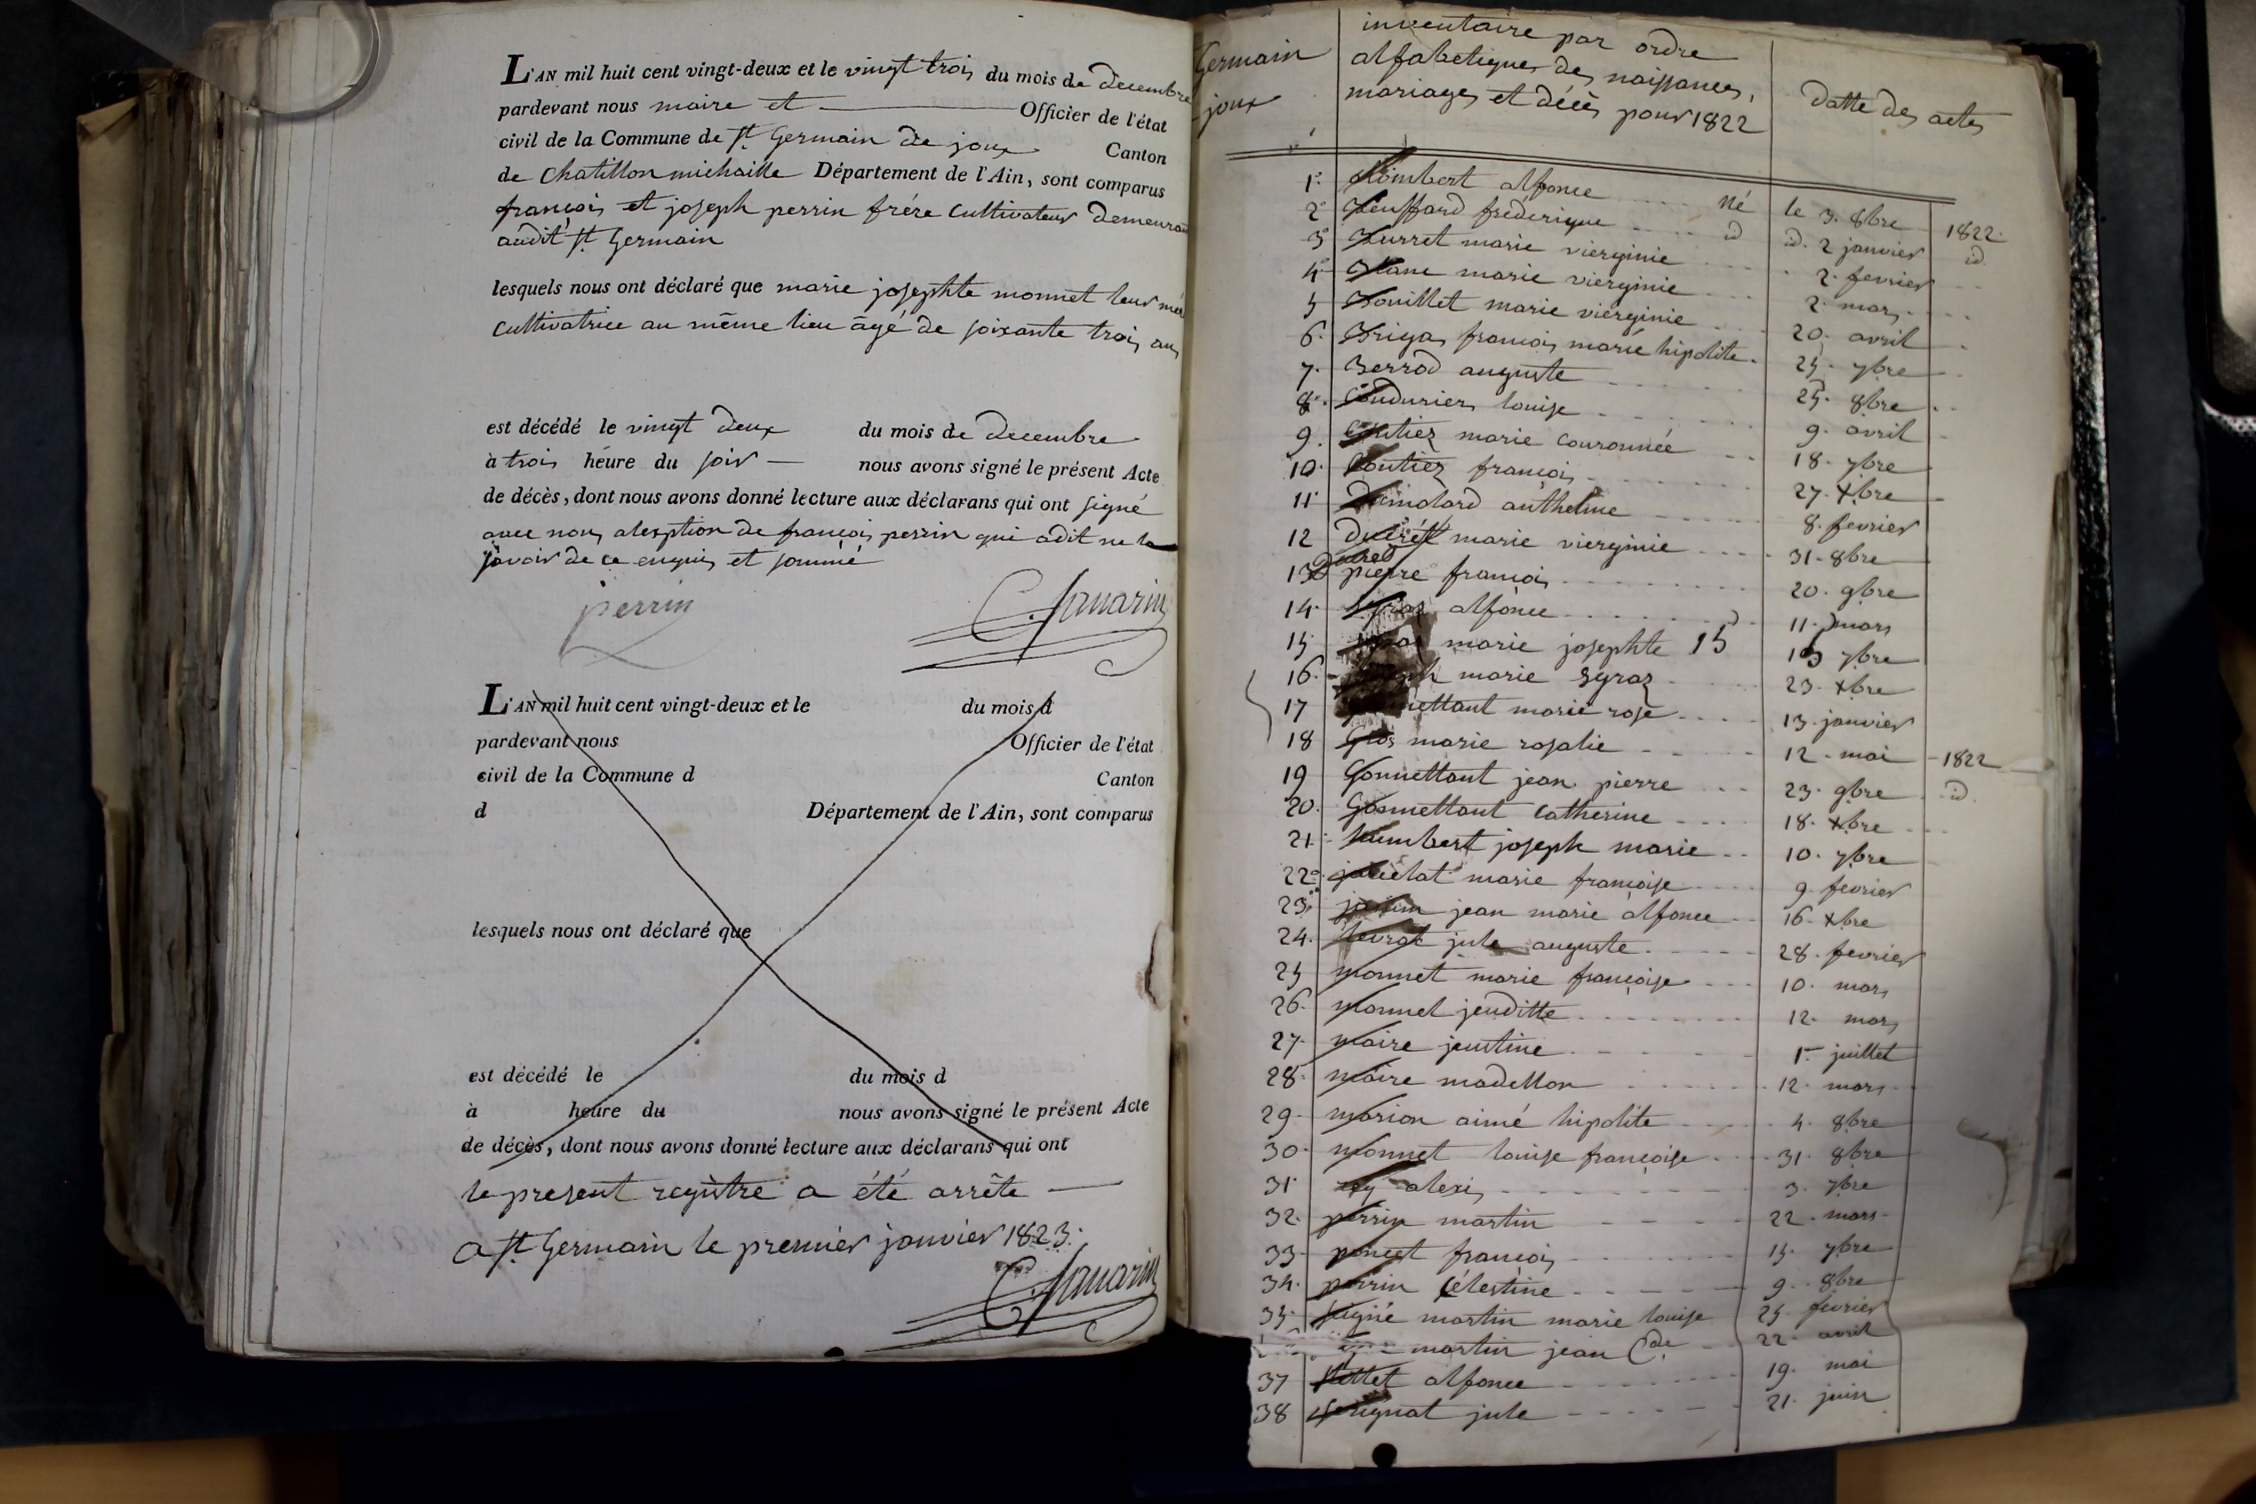 L'AN mil huit cent vingt-deux et le vingt trois du mois de decembre
pardevant nous maire et Officier de l'état
civil de la Commune de St Germain de joux Canton
de chatillon michaille Département de l'Ain, sont comparus
françois et joseph perrin frére Cultivateur demeurant
audit St Germain
lesquels nous ont déclaré que marie josephte monnet leur mér
cultivatrice au même lieu âgé de soixante trois ans
est décédé le vingt deux du mois de decembre
à trois héure du soir nous avons signé le présent Acte
de décès, dont nous avons donné lecture aux déclarans qui ont signé
avec nous alexption de françois perrin qui adit ne le
savoir de ce enquis et sommé
perrin
L'AN mil huit cent vingt-deux et le du mois d
pardevant nous Officier de l'état
civil de la Commune d Canton
d Département de l'Ain, sont comparus
lesquels nous ont déclaré que
est décédé le du mois d
à heure du nous avons signé le présent Acte
de décès, dont nous avons donné lecture aux déclarans qui ont
le present registre a été arrête
a St Germain le premier janvier 1823.
Germain
joux
inventaire par ordre
alfabetique des naissances,
mariages et décès pour 1822
datte des actes
1. humbert alfonce né le 3. 8bre 1822
2. frederique id id. 2 janvier id
3 marie vierginie 2. fevrier
4. Blanc marie vierginie 2. mars
5 Bouillet marie vierginie 20. avril
6. françois marie hipolite. 25. 7bre
7. Berrod auguste 25. 8bre
8. Coudurier louise 9. avril
9. Coutier marie couronnée 18. 7bre
10. Coutier françois 27. xbre
11 anthelme 8. fevrier
12 Ducrét marie vierginie 31. 8bre
13 pierre françois 20. 9bre
14. Egraz alfonce 11. mars
15. marie josephte 15 7bre
16. marie Egraz 23. xbre
17 marie rose 13. janvier
18 Gros marie rosalie 12. mai 1822
19 Gonnettant jean pierre 23. 9bre id.
20. Gonnettant Catherine 18. xbre
21. humbert joseph marie 10. 7bre
22. marie françoise 9 fevrier
23. jean marie alfonce 16. xbre
24. levrat jule auguste 28. fevrier
25 monnet marie françoise 10. mars
26. monnet jeuditte 12. mars
27. maire justine 1er juillet
28. maire madellon 12. mars
29. marion aimé hipolite 4. 8bre
30. monnet louise françoise 31. 8bre
31 alexis 3. 7bre
32. perrin martin 22. mars
33. poncet françois 15. 7bre
34. perrin Célestine 9. 8bre
35. martin marie louise 25. fevrier
martin jean Cde 22. avril
37 alfonce 19. mai
38 jule 21. juin